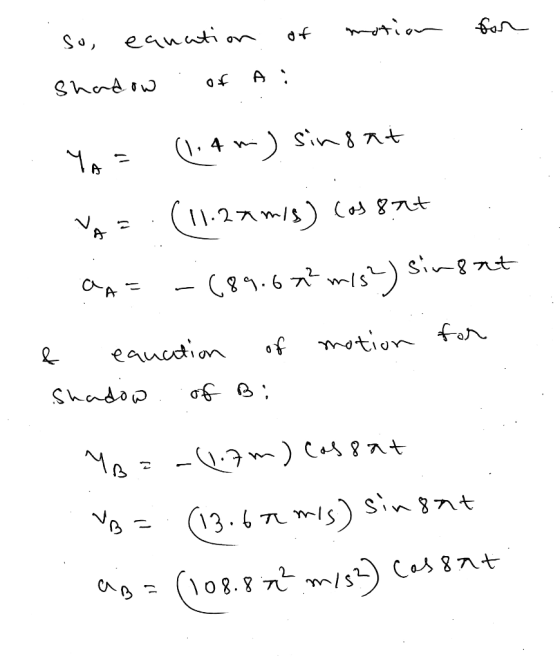 So, equation of motion for
shadow of A :
y_A = (1.4 m) sin 8πt
v_A = (11.2π m/s) cos 8πt
a_A = - (89.6 π² m/s²) sin 8πt
& equation of motion for
shadow of B :
y_B = -(1.7 m) cos 8πt
v_B = (13.6 π m/s) sin 8πt
a_B = (108.8 π² m/s²) cos 8πt